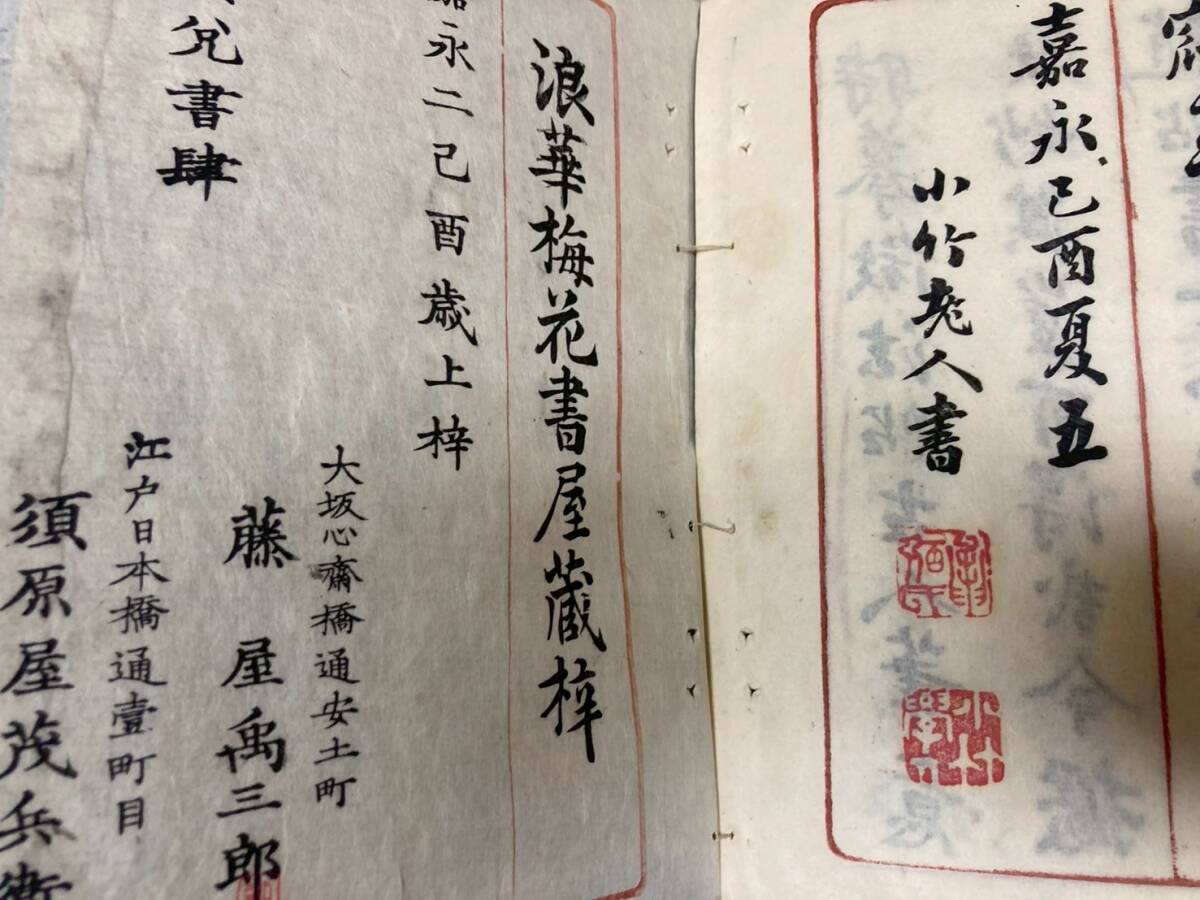 嘉永己酉夏五
小竹老人書
浪華梅花書屋蔵梓
永二己酉歳上梓
大坂心齋橋通安土町
藤屋禹三郎
兌書肆
江戸日本橋通壹町目
須原屋茂兵衛